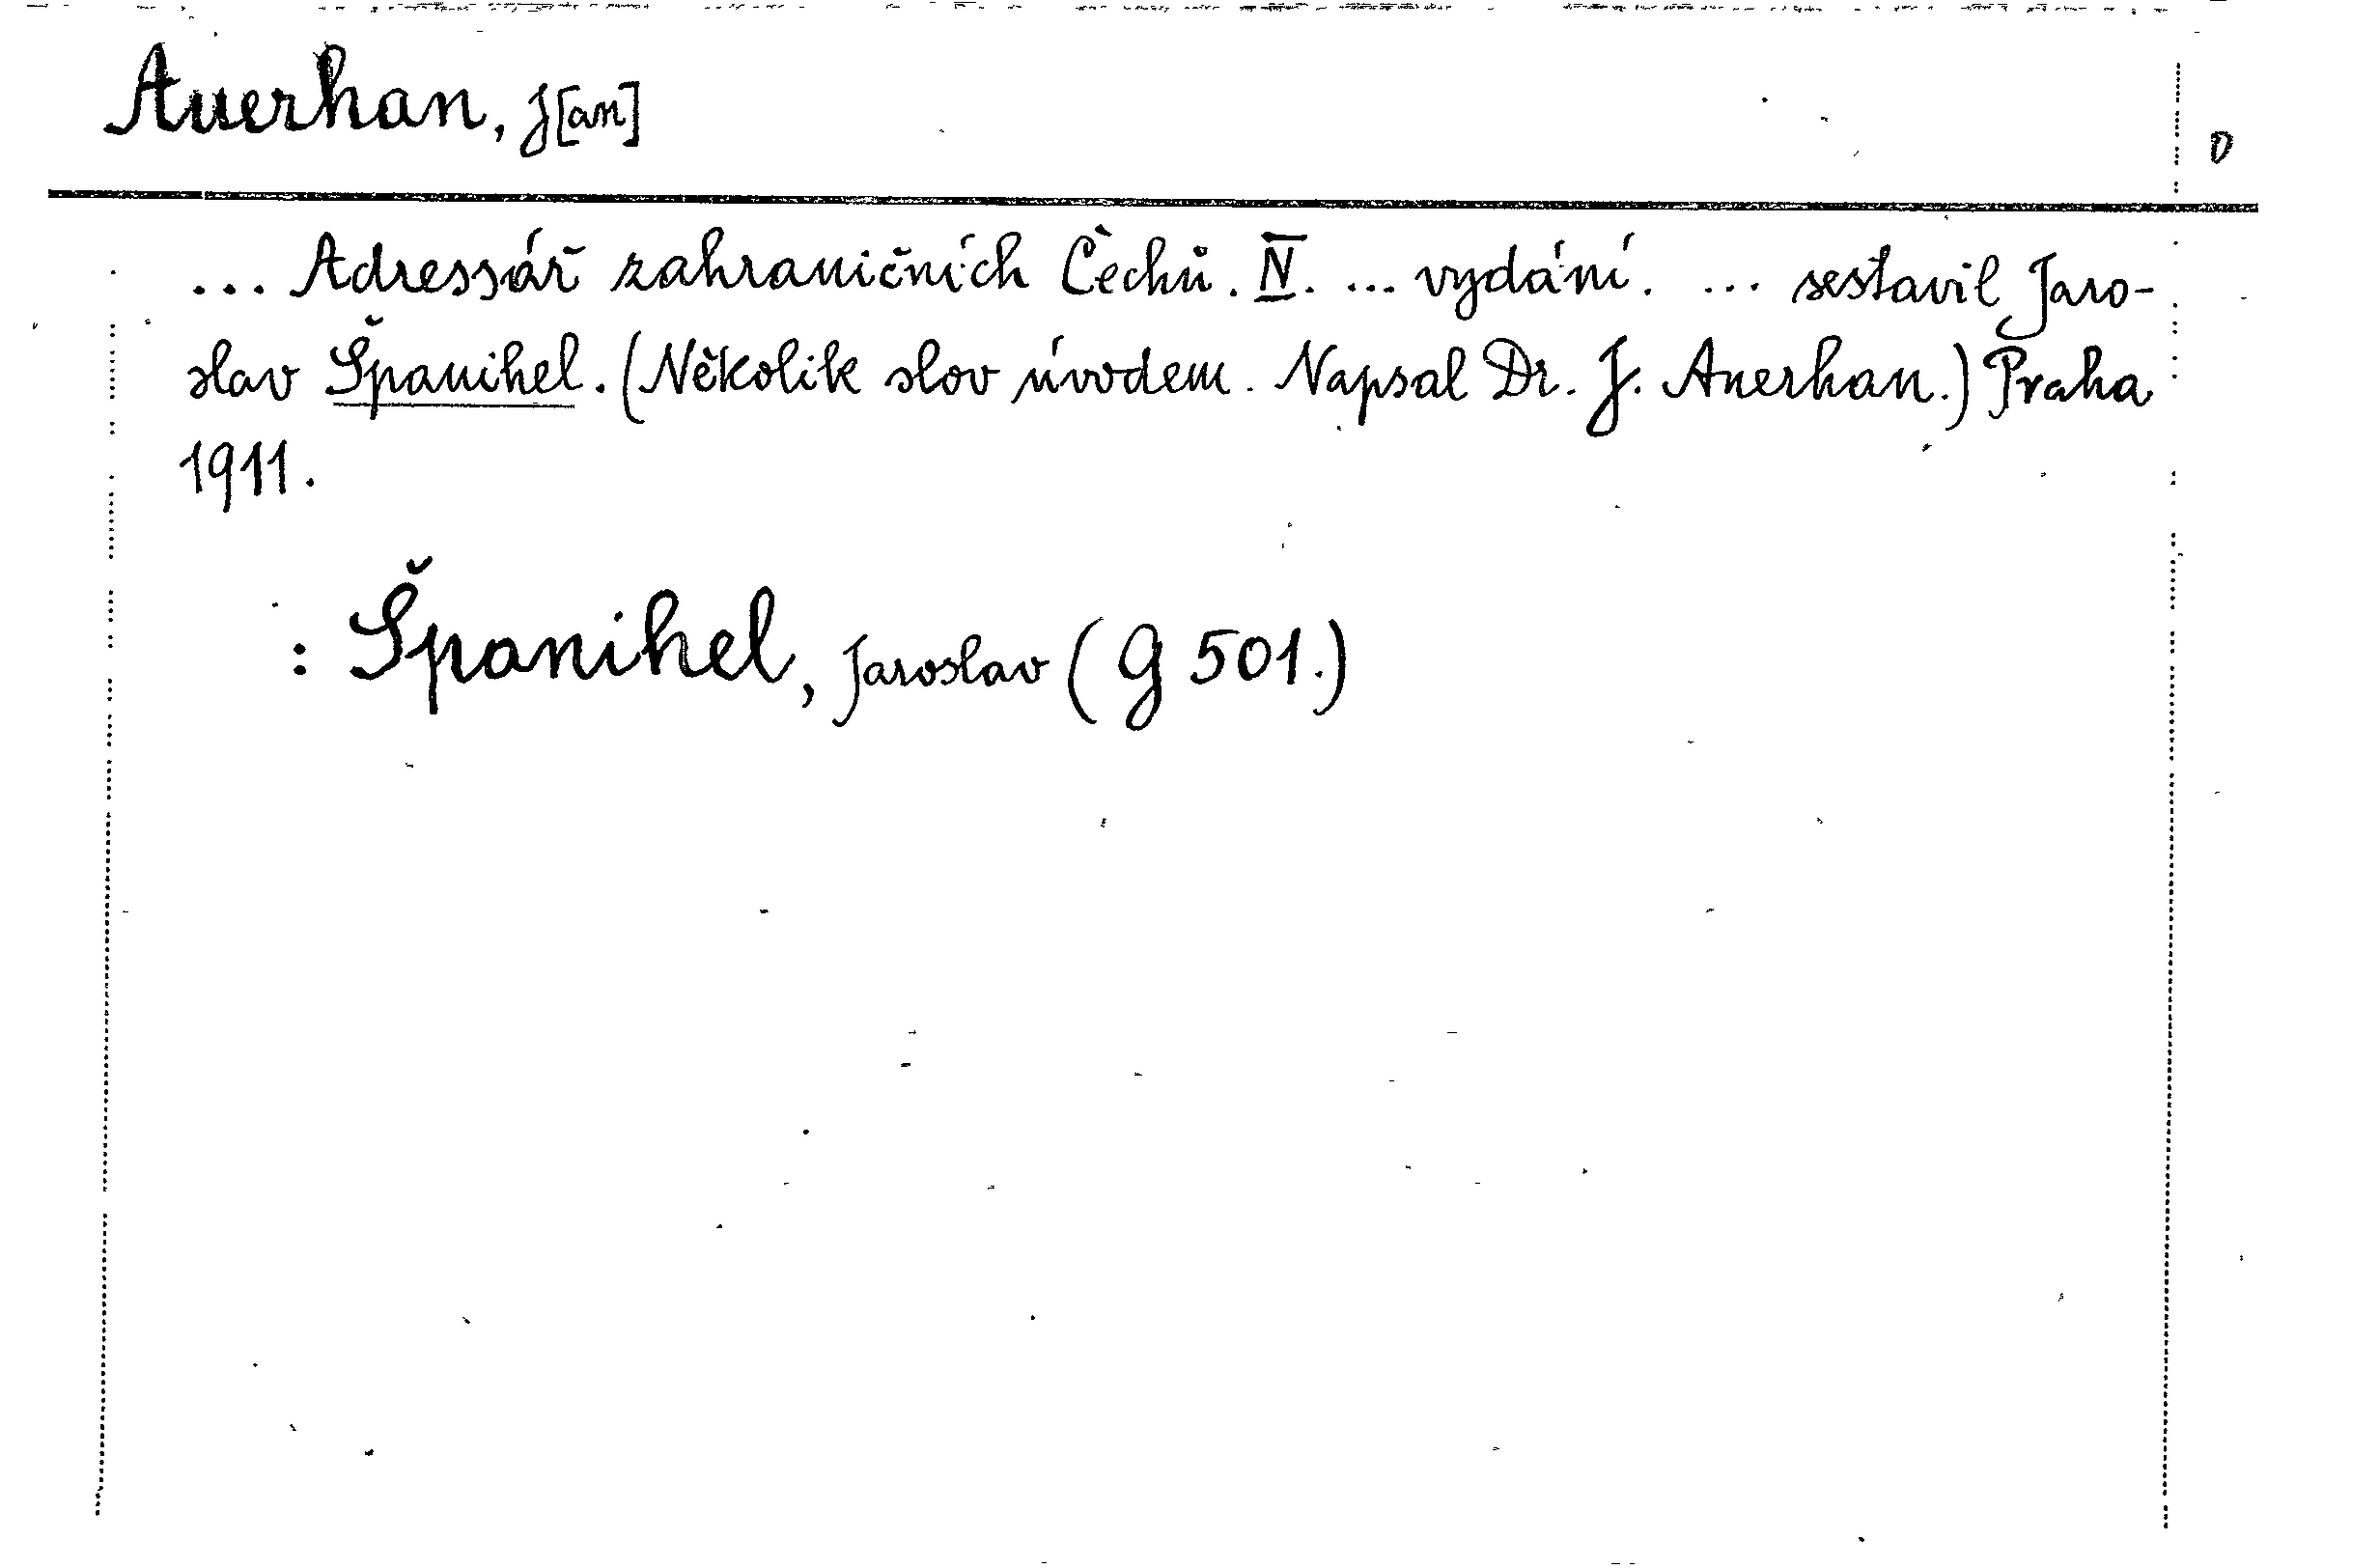 Auerhan, J[an]
0
... Adressář zahraničních Čechů. IV. ... vydání. ... sestavil Jaro-
slav Španihel. (Několik slov úvodem. Napsal Dr. J. Auerhan.) Praha
1911.
: Španihel, Jaroslav (G 501.)